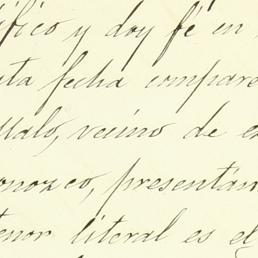 ífico y doy fé en
sta fecha compare
Malo, vecino de es
onozco, presentán
tenor literal es el